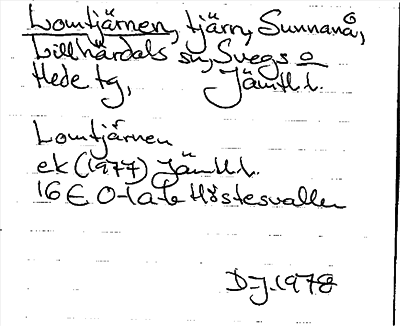 Lomtjärnen, tjärn, Sunnanå,
Lillhärdals sn, Svegs o
Hede tg, Jämtl. l.
Lomtjärnen
ek (1977) Jämtl. l.
16 E 0-1a-b Höstesvallen
D-J. 1978